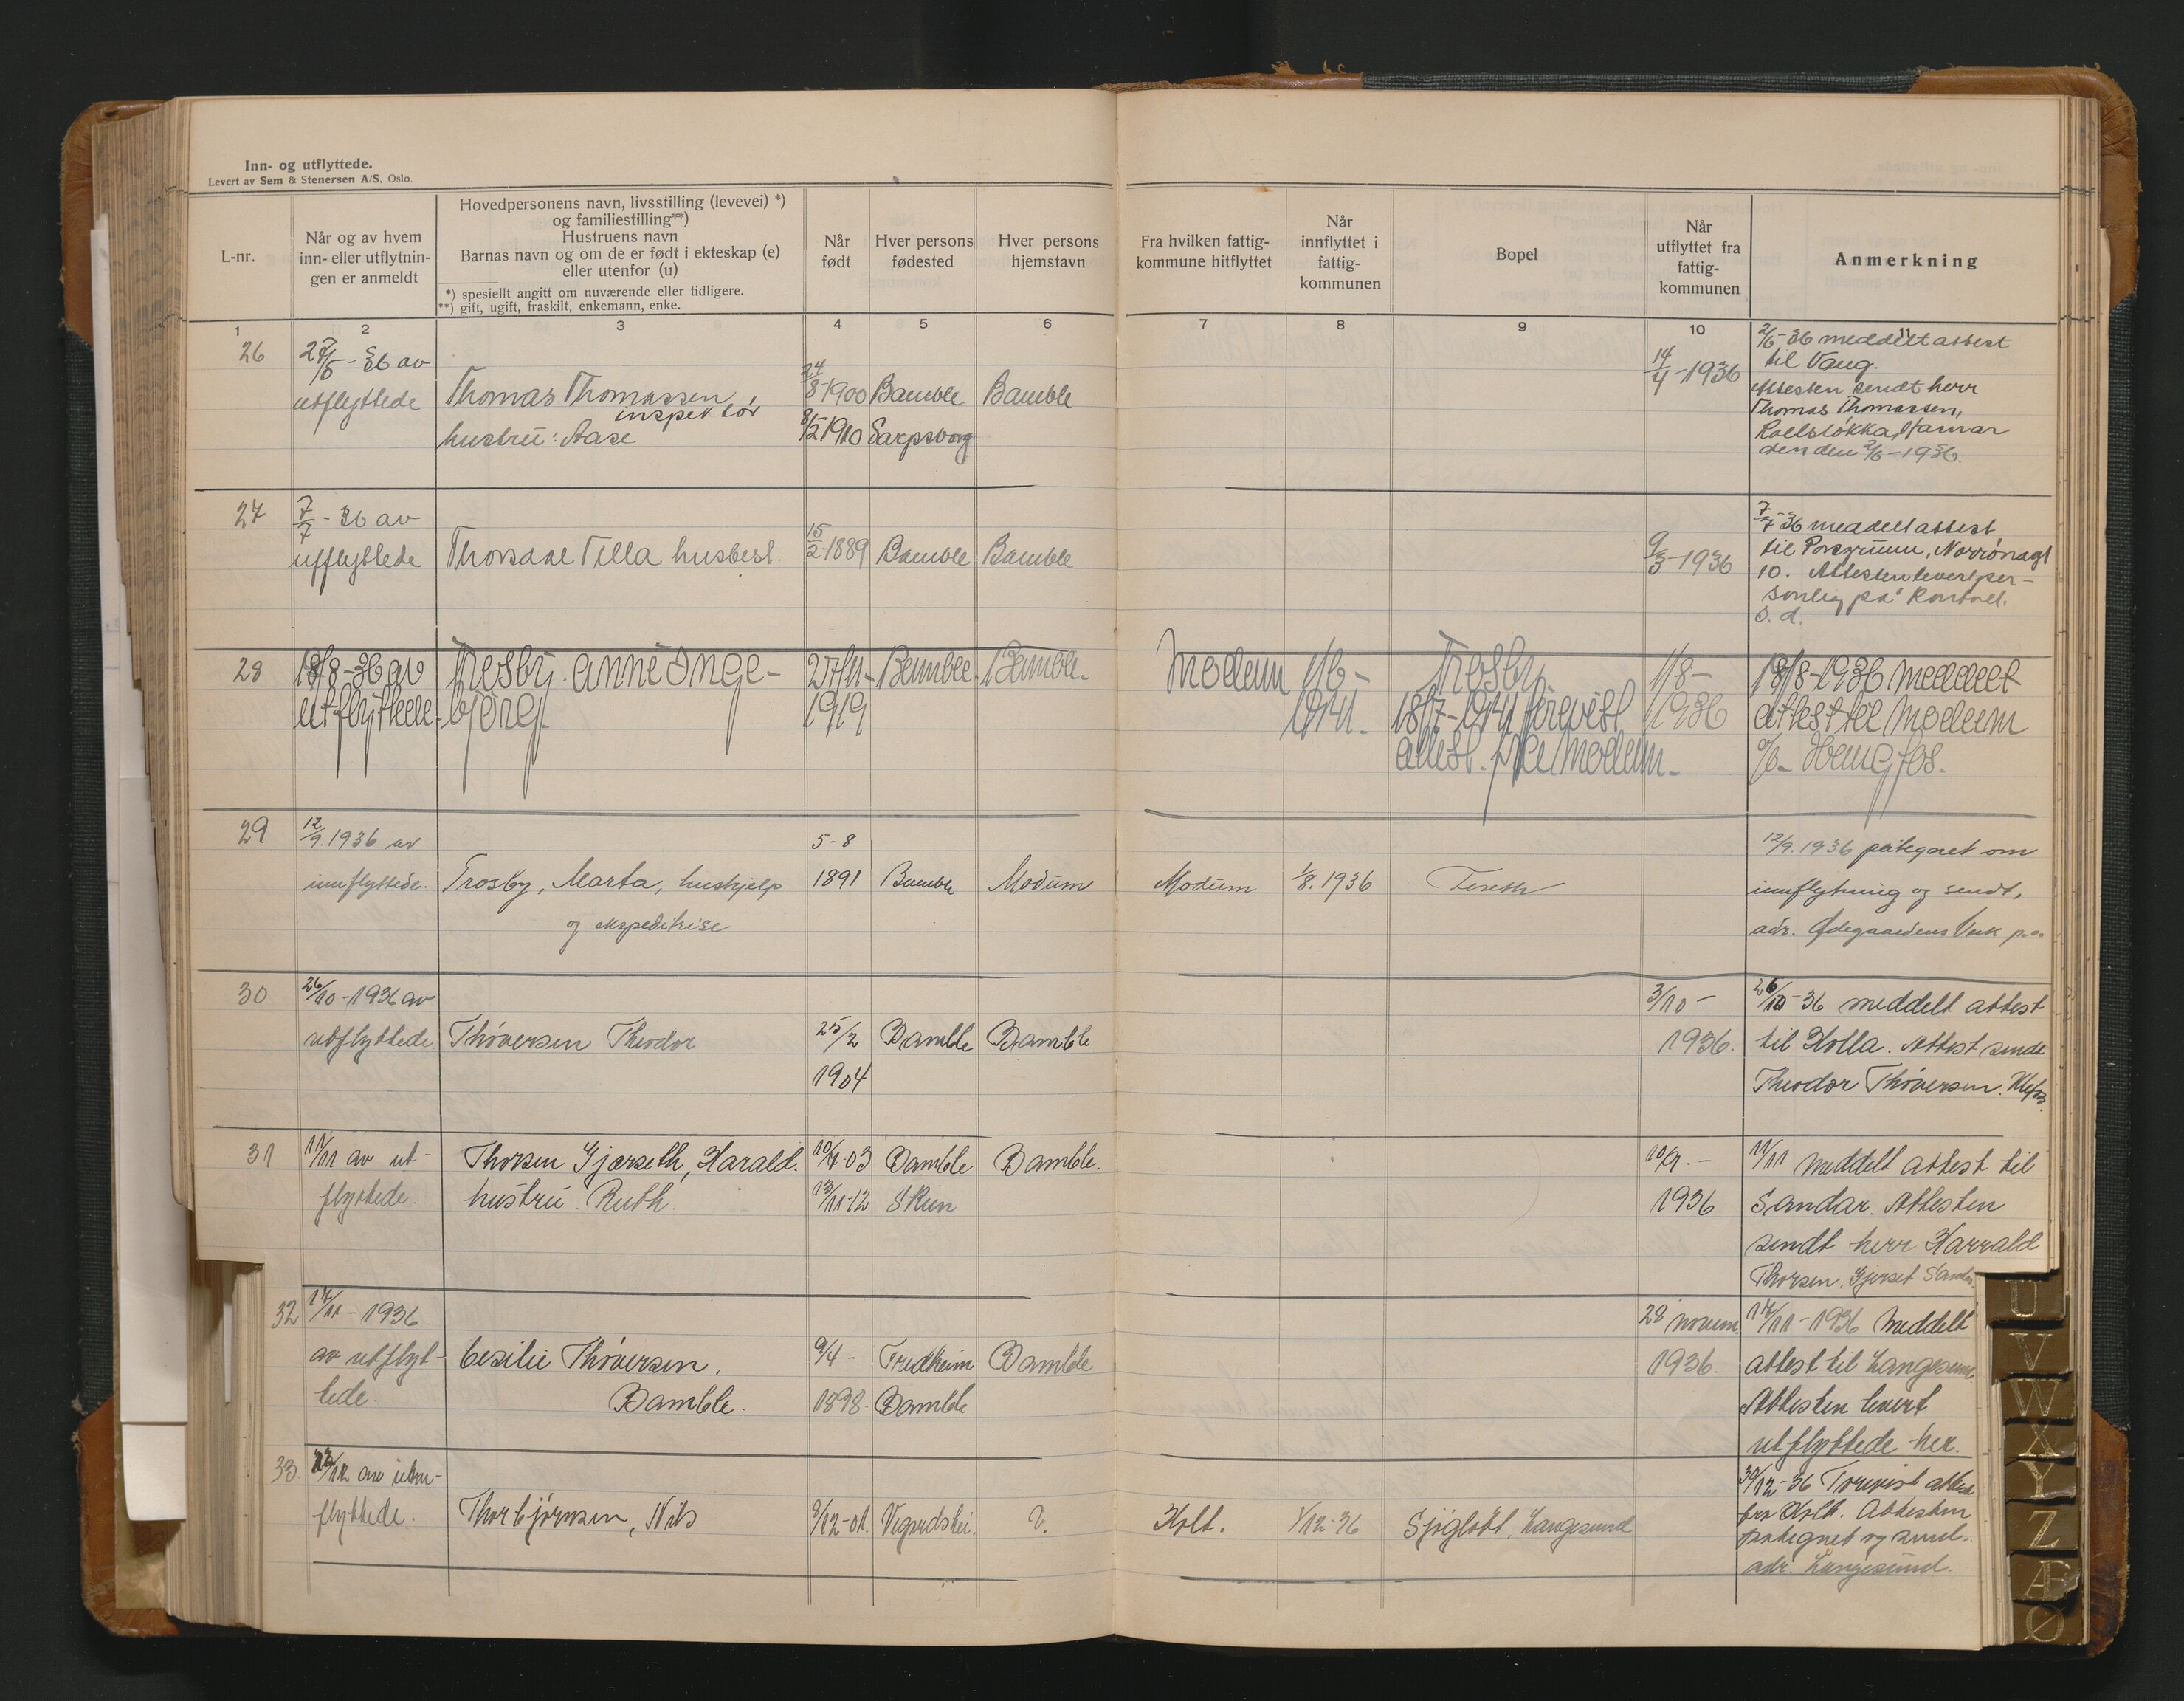 Inn- og utflyttede.
Levert av Sem & Stenersen A/S. Oslo.
L-nr.
Når og av hvem
inn- eller utflytnin-
gen er anmeldt
Hovedpersonens navn, livsstilling (levevei) *)
og familiestilling**)
Hustruens navn
Barnas navn og om de er født i ekteskap (e)
eller utenfor (u)
*) spesiellt angitt om nuværende eller tidligere.
**) gift, ugift, fraskilt, enkemann, enke.
Når
født
Hver persons
fødested
Hver persons
hjemstavn
Fra hvilken fattig-
kommune hitflyttet
Når
innflyttet i
fattig-
kommunen
Bopel
Når
utflyttet fra
fattig-
kommunen
Anmerkning
1 2 3 4 5 6 7 8 9 10 11
26
27/5-36 av
utflyttede
Thomas Thomassen,
inspektør
hustru: Aase
24/8-1900 Bamble Bamble
1910 Sarpsborg
14/4-1936
2/6-36 meddelt attest
til Vang.
Attesten sendt herr
Thomas Thomassen,
Hamar
den 2/6-1936.
27
7/7-36 av
utflyttede
Thorsdal Tilla husbest.
15/2-1889 Bamble Bamble
9/3-1936
7/7-36 meddelt attest
til Porsgrunn, Norrønagt
10. Attesten levert per-
sonlig på kontoret.
s. d.
28
18/8-36 av
utflyttede.
Trosby. Anne Inge-
bjørg.
27/11-
1919
Bamble. Bamble.
Modum
1/6-
1914.
Trosby
18/7-1914 forevist
attest. fra Modum.
1/8-
1936
18/8-1936 meddelt
attest til Modum
29
12/9.1936 av
innflyttede.
Trosby, Marta, hushjelp
og ekspeditrise
5-8
1891
Bamble Modum
Modum 1/8.1936
12/9.1936 påtegnet om
innflytning og sendt,
adr. Ødegaardens Verk p.a.
30
26/10-1936 av
utflyttede
Thoversen Theodor
25/2
1904
Bamble Bamble
3/10-
1936.
26/10-36 meddelt attest
til Holla. Attest sendt
Theodor Thoversen.
31
11/11 av ut-
flyttede.
Thorsen Gjærseth, Harald.
hustru. Ruth.
10/7-03 Bamble Bamble.
13/11-12 Skien
10/9.-
1936
11/11 meddelt attest til
Sandar. Attesten
sendt herr Harrald
Thorsen. Gjerset
32
17/11-1936
av utflyt-
tede.
Cesilie Thoversen.
Bamble.
9/4-
1898.
Fredheim
Bamble
Bamble
28 novem.
1936.
17/11-1936 Meddelt
attest til Langesund.
Attesten levert
utflyttede her.
33.
av inn-
flyttede.
Thorbjørnsen, Nils
9/12-01. Vegusdshei. V.
Holt. 1/12-36 Langesund
30/12-36 Forevist attest
fra Holt. Attesten
påtegnet og sendt.
adr. Langesund.
U
V
W
X
Y
Z
Æ
Ø